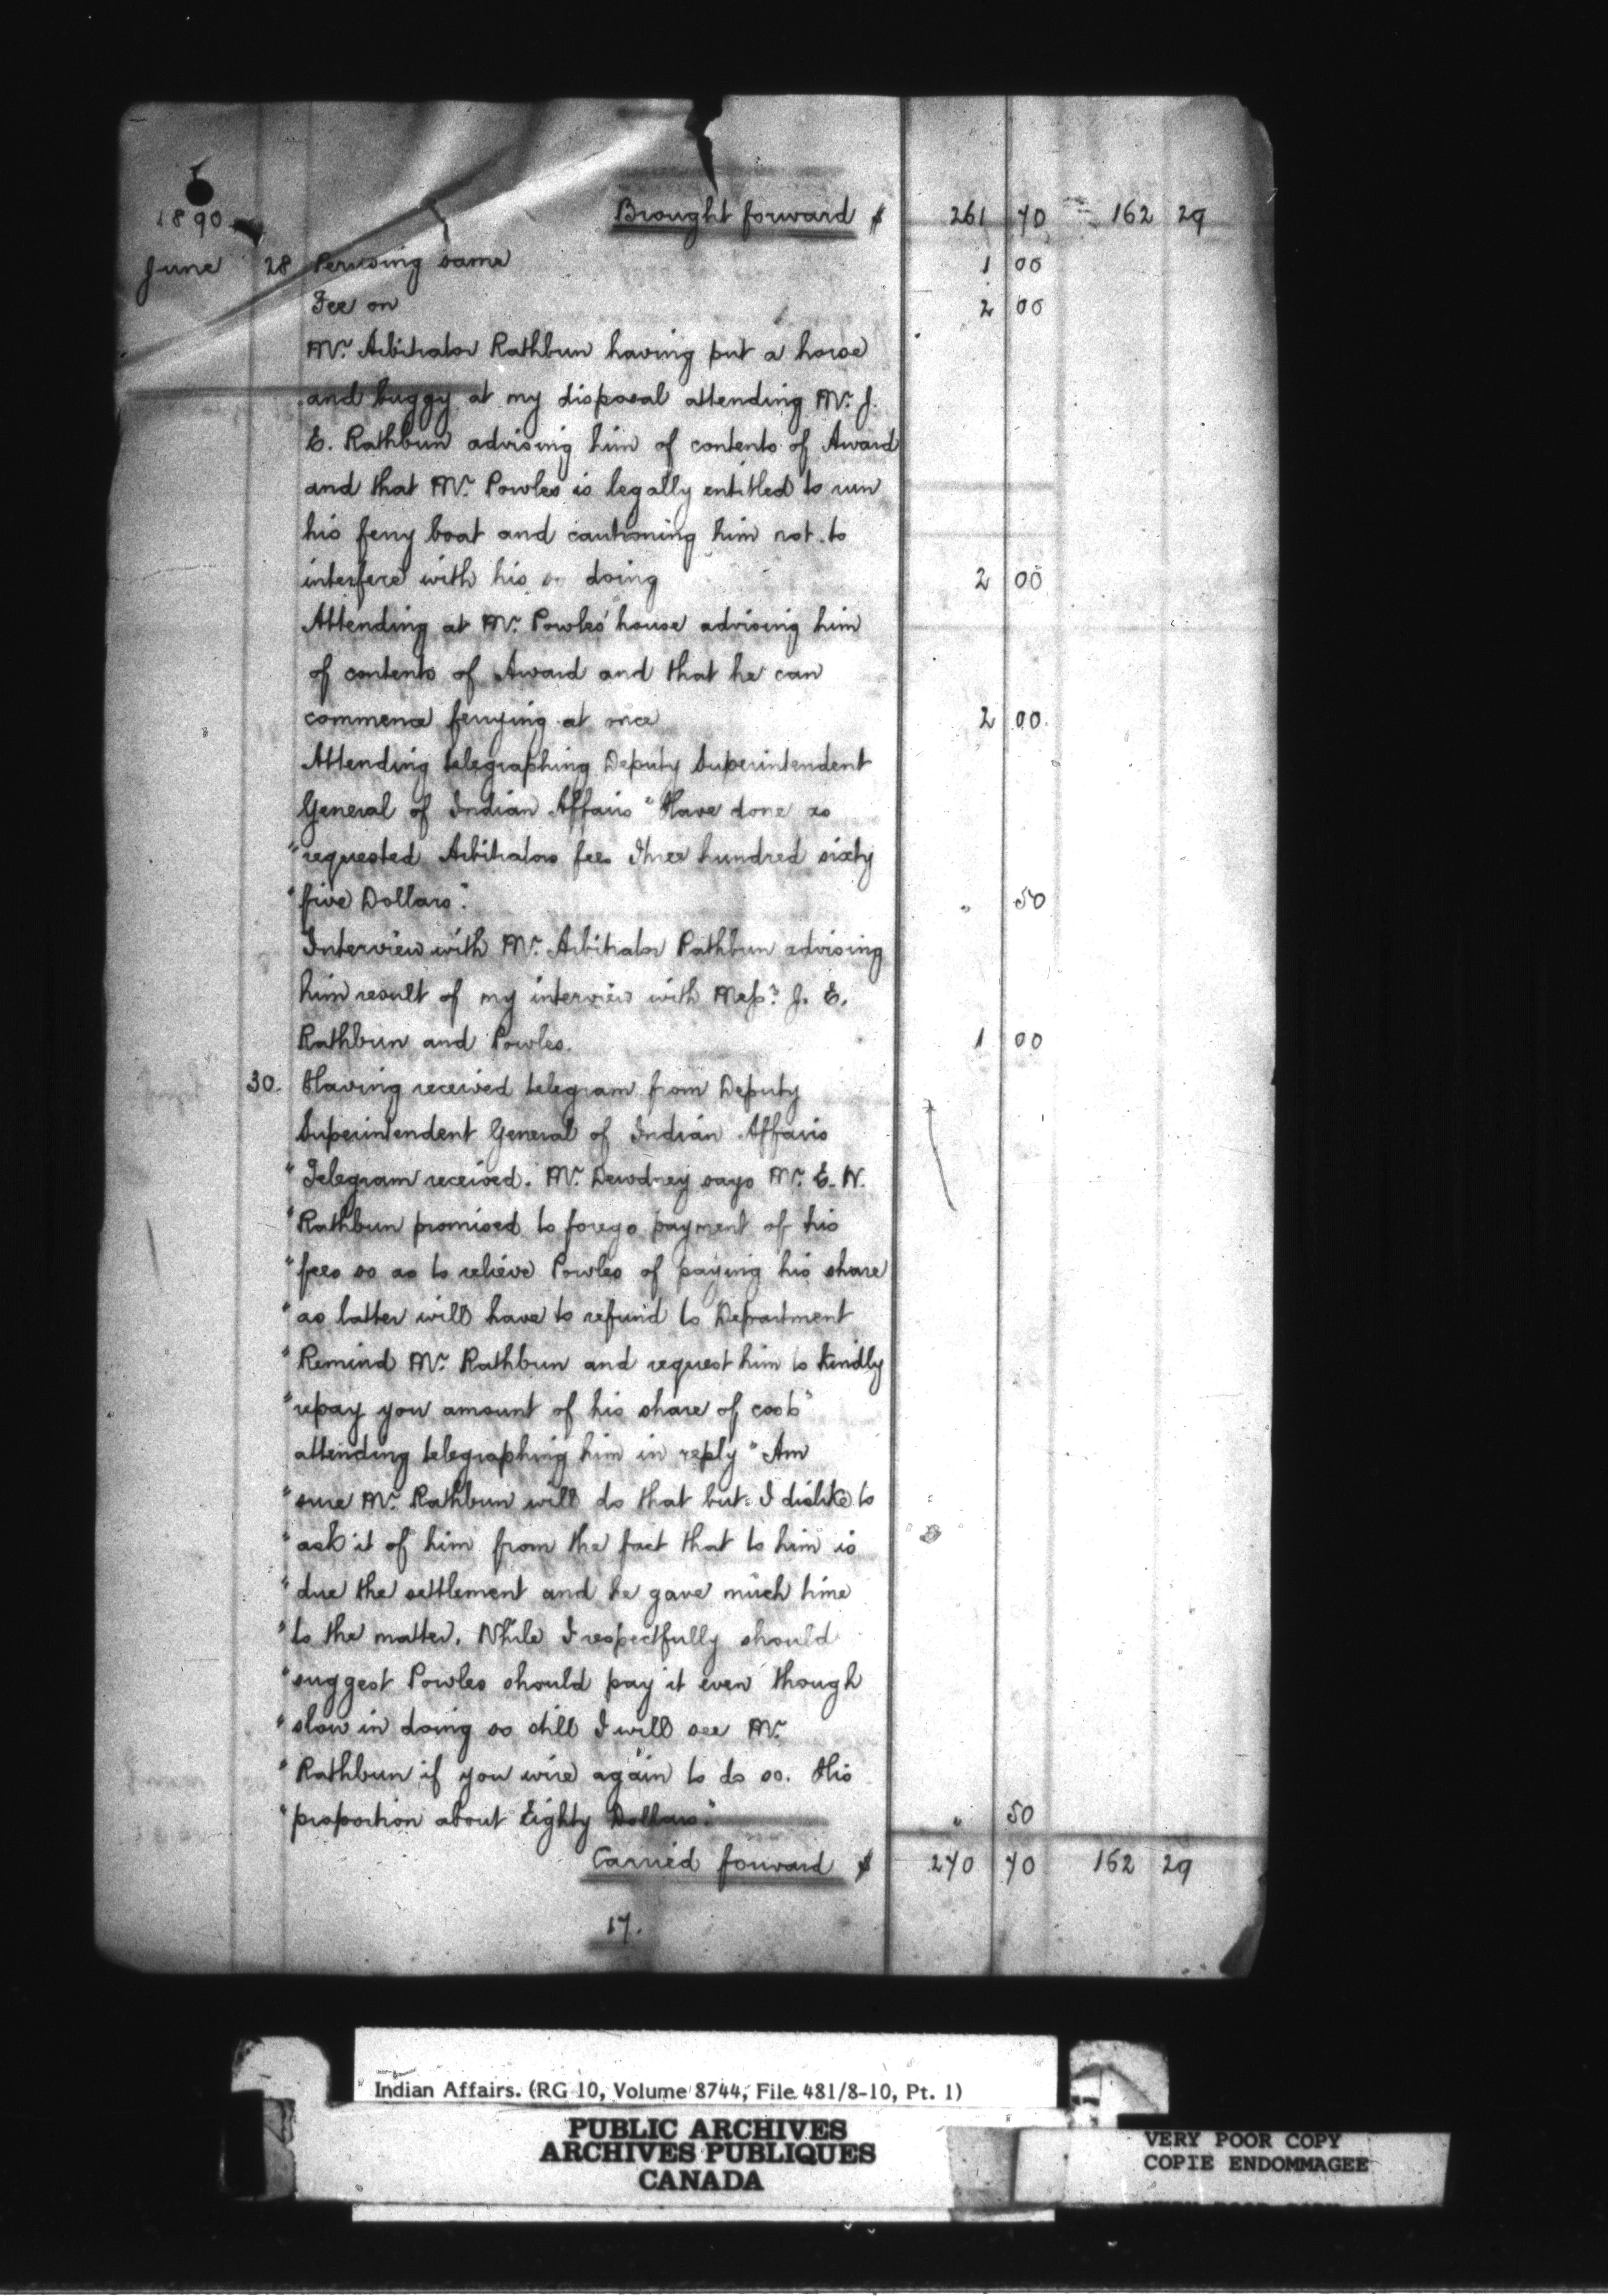 1890
Brought forward $ 261 70 162 29
June 28 Perusing same 1 00
Fee on 2 00
Mr. Arbitrator Rathbun having put a horse
and buggy at my disposal attending Mr. J.
E. Rathbun advising him of contents of Award
and that Mr. Powles is legally entitled to run
his ferry boat and cautioning him not to
interfere with his so doing 2 00
Attending at Mr. Powles' house advising him
of contents of Award and that he can
commence ferrying at once 2 00
Attending telegraphing Deputy Superintendent
General of Indian Affairs "Have done as
"requested Arbitrators fees Three hundred sixty
"five Dollars". " 50
Interview with Mr. Arbitrator Rathbun advising
him result of my interview with Messrs. J. E.
Rathbun and Powles. 1 00
30. Having received telegram from Deputy
Superintendent General of Indian Affairs
"Telegram received. Mr. Dewdney says Mr. E. W.
"Rathbun promised to forego payment of his
"fees so as to relieve Powles of paying his share
"as latter will have to refund to Department
"Remind Mr. Rathbun and request him to kindly
"repay you amount of his share of costs"
attending telegraphing him in reply "Am
"sure Mr. Rathbun will do that but I dislike to
"ask it of him from the fact that to him is
"due the settlement and he gave much time
"to the matter. While I respectfully should
"suggest Powles should pay it even though
"slow in doing so still I will see Mr.
"Rathbun if you wire again to do so. His
"proportion about Eighty Dollars." " 50
Carried forward $ 270 70 162 29
17.
Indian Affairs. (RG 10, Volume 8744, File 481/8-10, Pt. 1)
PUBLIC ARCHIVES
ARCHIVES PUBLIQUES
CANADA
VERY POOR COPY
COPIE ENDOMMAGEE